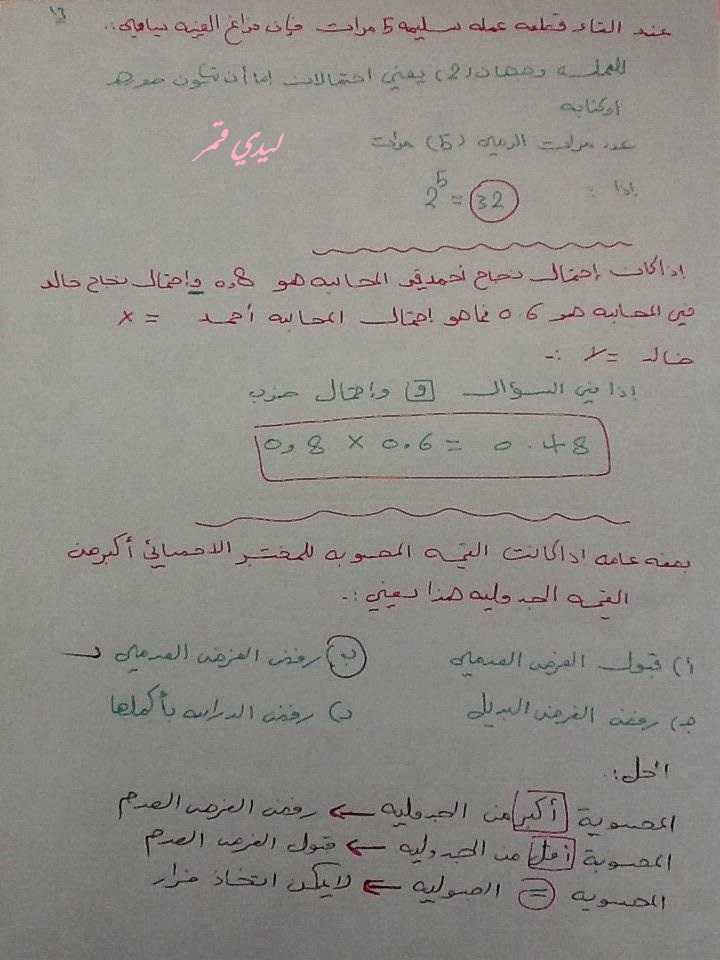 ١٣
عند القاء قطعه عمله سليمه 5 مرات فإن فراغ العينه يساوي :.
للعمله وجهان (2) يعني احتمالات إما أن تكون صوره
اوكتابه
عدد مرات الرمي (5) مرات
ليدي قمر
إذا :
2^5 = 32
إذا كان إحتمال نجاح أحمد في المحاسبه هو 0,8 وإحتمال نجاح خالد
في المحاسبه هو 0.6 فما هو إحتمال المحاسبه أحمد = x
خالد = y :-
إذا في السؤال و وإحتمال ضرب
0,8 × 0.6 = 0.48
بصفه عامه اذا كانت القيمه المحسوبه للمختبر الاحصائي أكبر من
القيمه الجدوليه هذا يعني :-
أ) قبول الفرض العدمي ب) رفض الفرض العدمي
جـ) رفض الفرض البديل د) رفض الدراسه بأكملها
الحل :
المحسوبة أكبر من الجدوليه ← رفض الفرض العدم
المحسوبة أقل من الجدوليه ← قبول الفرض العدم
المحسوبه = الجدوليه ← لايمكن اتخاذ قرار